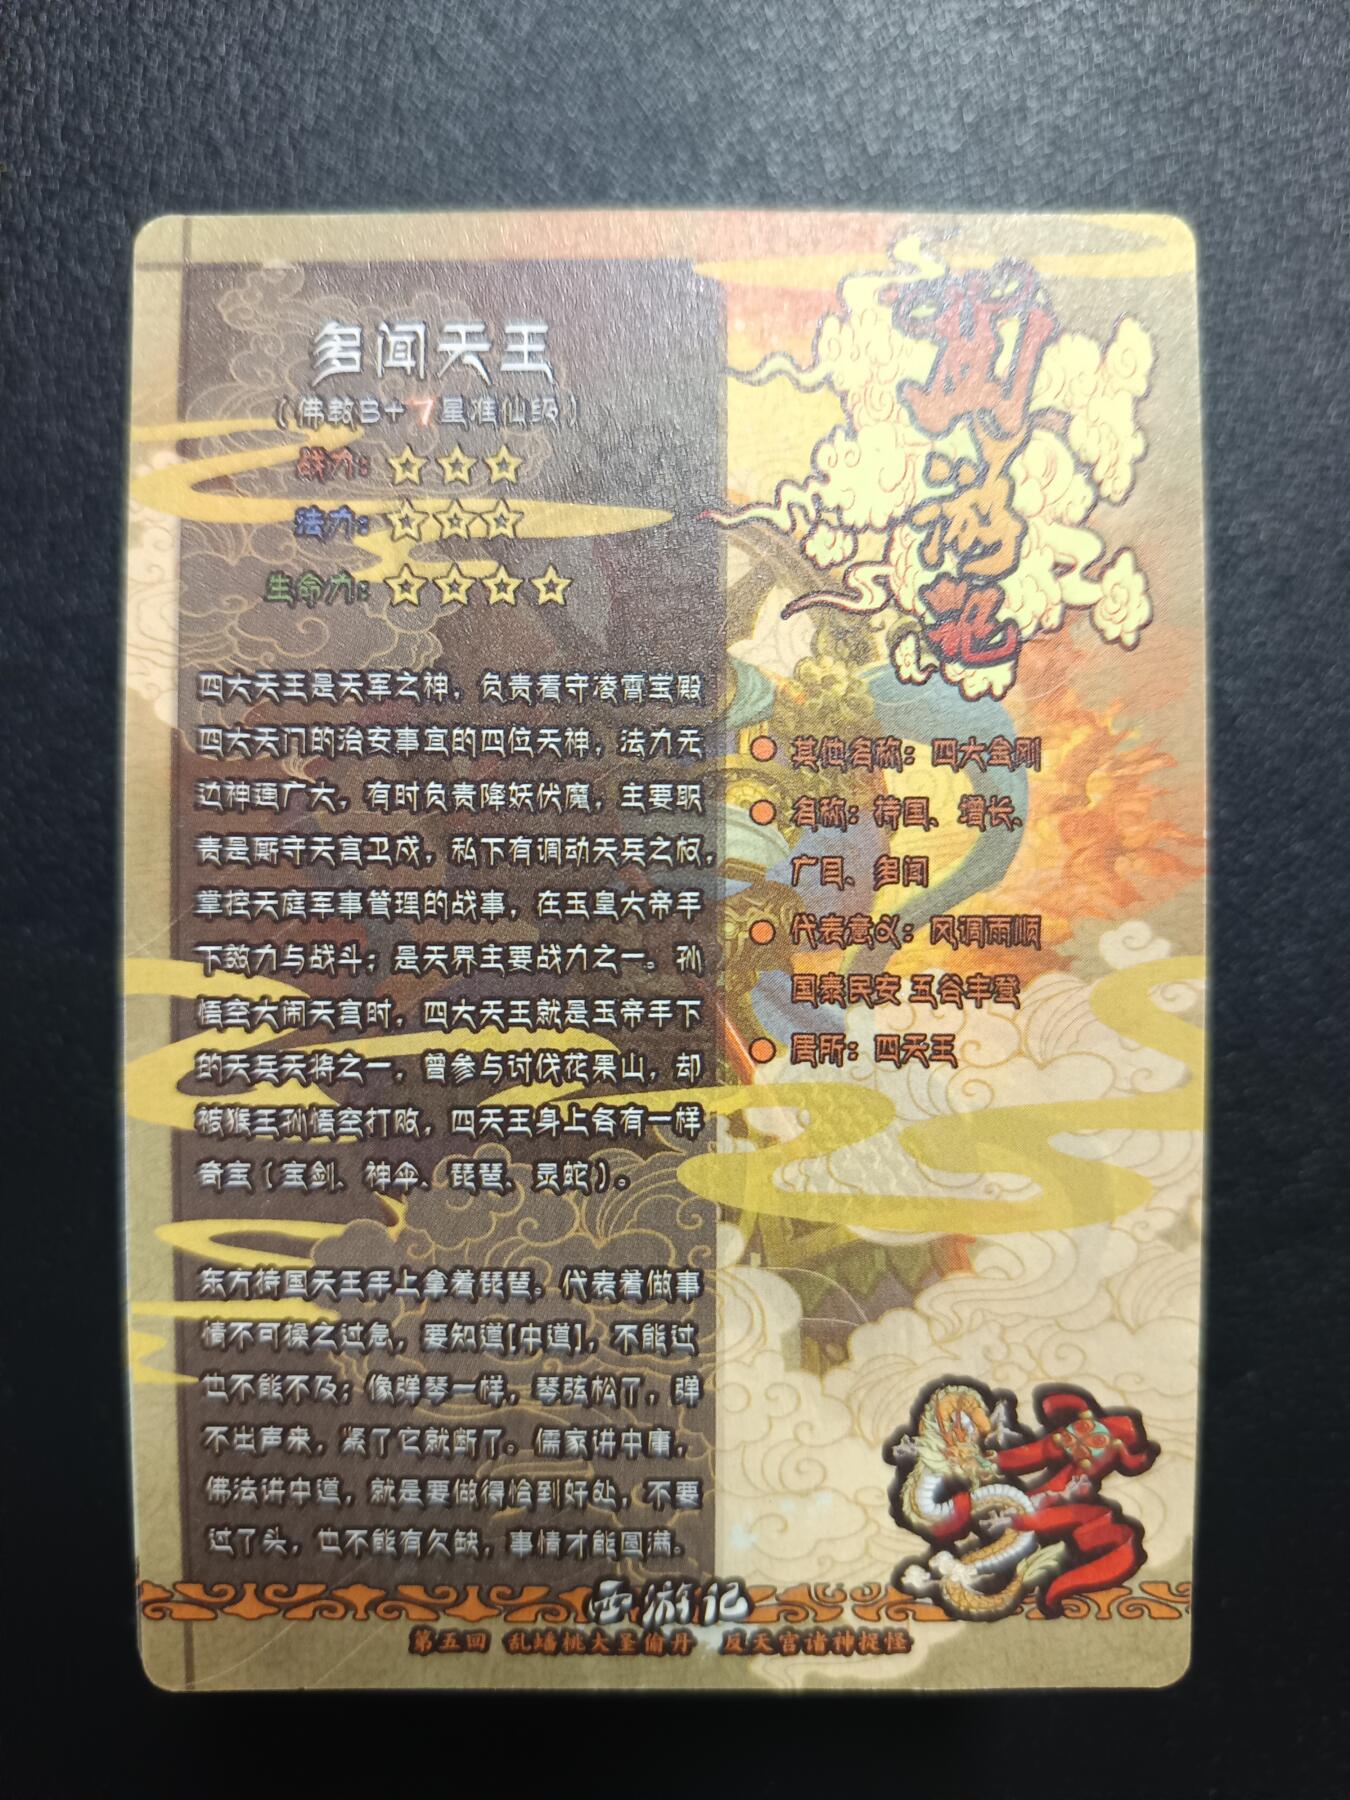 多闻天王
(佛教B+7星准仙级)
战力:☆☆☆
法力:☆☆☆
生命力:☆☆☆☆
四大天王是天军之神，负责看守凌霄宝殿
四大天门的治安事宜的四位天神，法力无
边神通广大，有时负责降妖伏魔，主要职
责是厮守天宫卫戍，私下有调动天兵之权，
掌控天庭军事管理的战事，在玉皇大帝手
下效力与战斗；是天界主要战力之一。孙
悟空大闹天宫时，四大天王就是玉帝手下
的天兵天将之一，曾参与讨伐花果山，却
被猴王孙悟空打败，四天王身上各有一样
奇宝(宝剑、神伞、琵琶、灵蛇)。
东方持国天王手上拿着琵琶。代表着做事
情不可操之过急，要知道[中道]，不能过
也不能不及；像弹琴一样，琴弦松了，弹
不出声来，紧了它就断了。儒家讲中庸，
佛法讲中道，就是要做得恰到好处，不要
过了头，也不能有欠缺，事情才能圆满。
西游记
● 其他名称：四大金刚
● 名称：持国、增长、
广目、多闻
● 代表意义：风调雨顺
国泰民安 五谷丰登
● 归平：四天王
西游记
第五回 乱蟠桃大圣偷丹 反天宫诸神捉怪